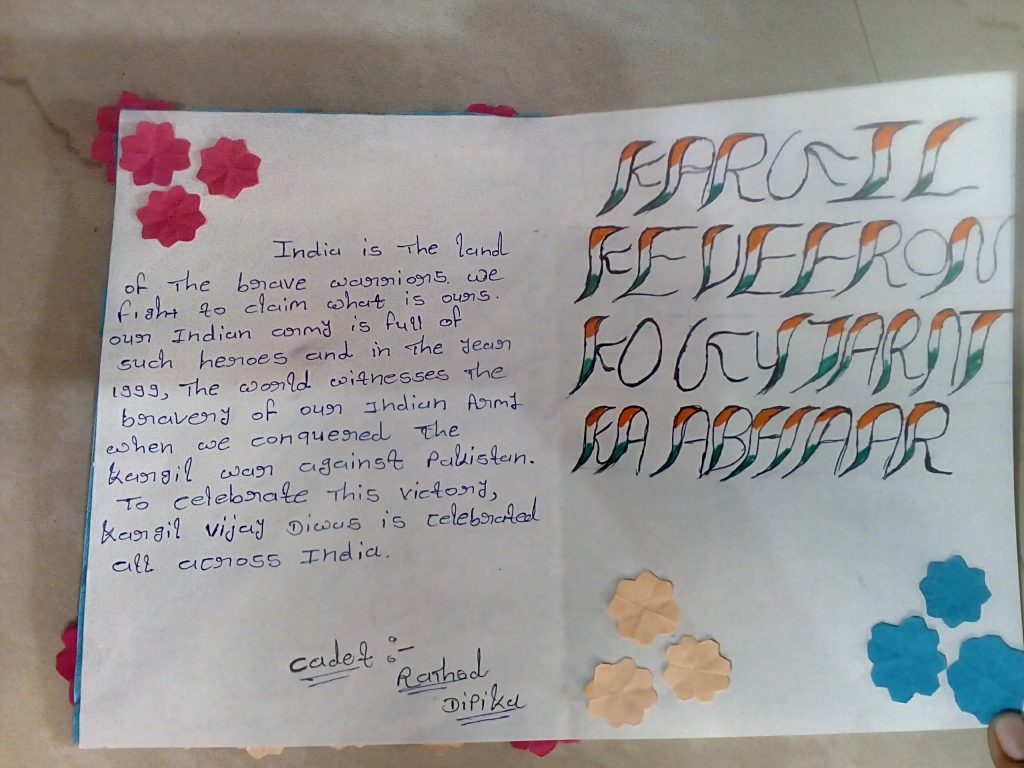 India is The land
of The brave warriors. we
fight to claim what is ours.
our Indian army is full of
such heroes and in The year
1999, The world witnesses The
bravery of our Indian Army
when we conquered The
kargil war against Pakistan.
To celebrate This victory,
kargil vijay Diwas is celebrated
all across India.
Cadet :-
Rathod
Dipika
KARGIL
KE VEERON
KO GUJARAT
KA ABHAAR